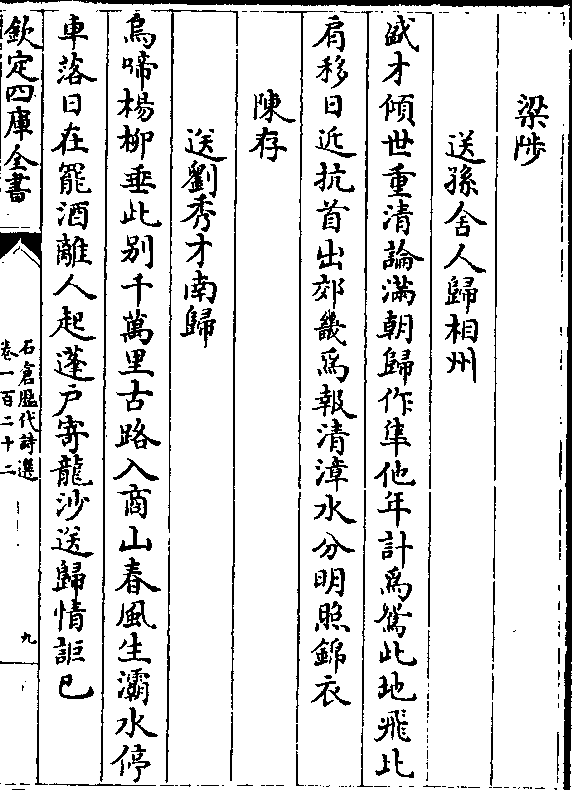 梁陟
送孫舍人歸相州
盛才傾世重清論滿朝歸作隼他年計為鴛此地飛比
肩移日近抗首出郊畿為報清漳水分明照錦衣
陳存
送劉秀才南歸
烏啼楊柳垂此别千萬里古路入商山春風生灞水停
車落日在罷酒離人起蓬户寄龍沙送歸情詎已
欽定四庫全書
石倉歷代詩選
卷一百二十二
九